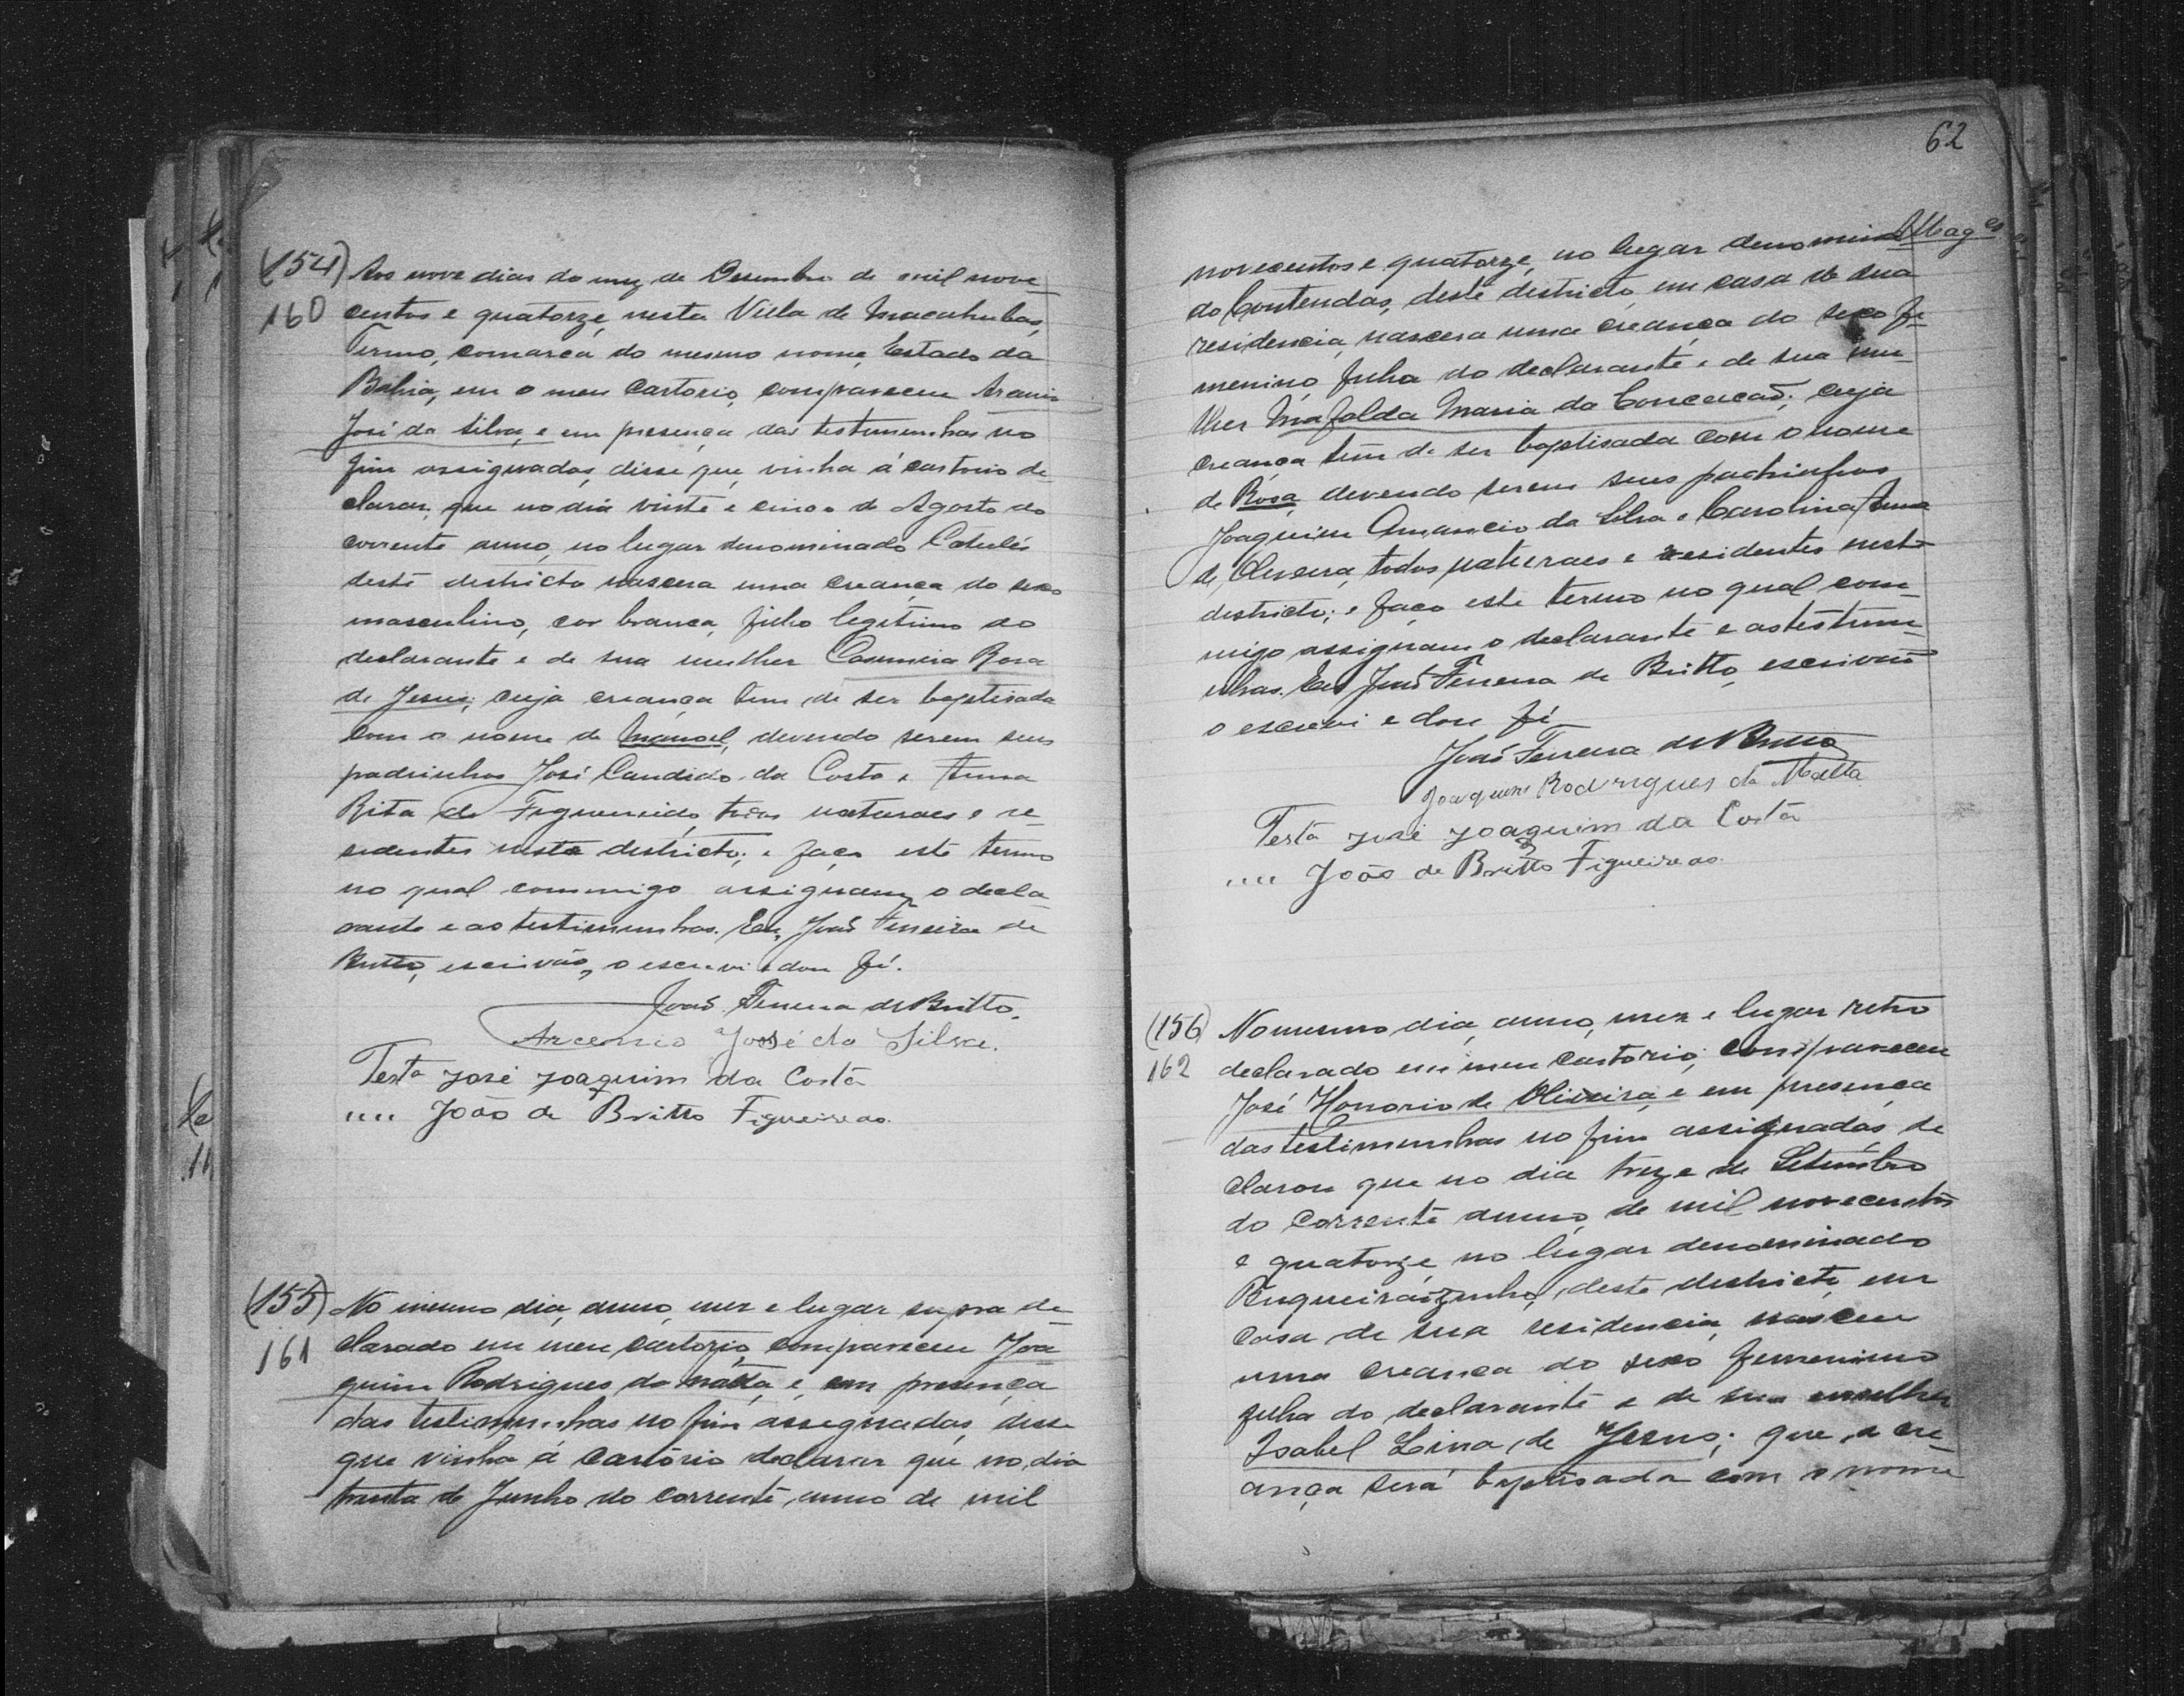 (154) Aos nove dias do mez de Desembro de mil nove-
160 centos e quatorze, nesta Villa de Macahubas,
Termo, comarca do mesmo nome, Estado da
Bahia, em o meu cartorio, compareceu
José da Silva, e em presença das testemunhas no
fim assignadas, disse que vinha á cartorio de-
clarar, que no dia vinte e cinco de Agosto do
corrente anno, no lugar denominado Catulés
deste districto nascera uma creança do sexo
masculino, cor branca, filho legitimo do
declarante e de sua mulher Casimira Rosa
de Jesus; cuja creança tem de ser baptisada
com o nome de Manoel, devendo serem seus
padrinhos José Candido da Costa e Anna
Rita de Figueiredo, todos naturaes e re-
sidentes neste districto; e faço este termo
no qual commigo assignam o decla-
rante e as testimunhas. Eu, João Ferreira de
Britto, escrivão, o escrevi e dou fé.
João Ferreira de Britto.
Arcenio José da Silva.
Testa José Joaquim da Costa
"" João de Britto Figueiredo.
(155) No mesmo dia, anno, mez e lugar supra de-
161 clarado em meu cartorio, compareceu Joa-
quim Rodrigues da Matta, e, em presença
das testimunhas no fim assignadas, disse
que vinha á cartorio declarar que no dia
trinta de Junho do corrente anno de mil
62
novecentos e quatorze, no lugar denomina-
do Contendas, deste districto, em casa de sua
residencia, nascera uma creança do sexo fe-
menino, filha do declarante e de sua mu-
lher Mafalda Maria da Conceicaõ; cuja
creança tem de ser baptisada com o nome
de Rosa, devendo serem seus padrinhos
Joaquim Amancio da Silva e Carolina Anna
de Oliveira, todos naturaes e residentes neste
districto; e faço este termo no qual com-
migo assignam o declarante e as testemu-
nhas. Eu João Ferreira de Britto, escrivão
o escrevi e dou fé
João Ferreira de Britto
Joaquim Rodrigues da Matta
Testa José Joaquim da Costa
"" João de Britto Figueiredo.
(156) No mesmo dia, anno, mez e lugar retro
162 declarado em meu cartorio, compareceu
José Honorio de Oliveira, e em presença
das testimunhas no fim assignadas, de
clarou que no dia treze de Setembro
do corrente anno de mil novecentos
e quatorze, no lugar denominado
deste districto, em
casa de sua residencia, nasceu
uma creança do sexo femenino
filha do declarante e de sua mulher
Isabel Lina de Jesus; que a cre-
ança será baptisada com o nome